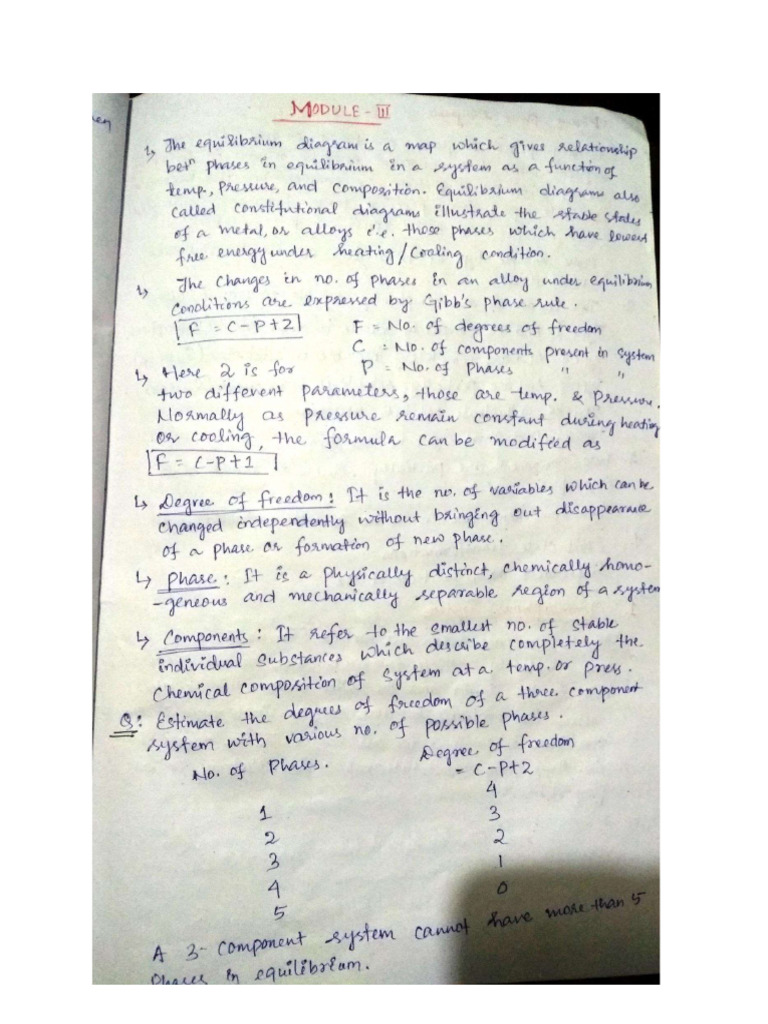 en
MODULE - III
↳ The equilibrium diagram is a map which gives relationship
betn phases in equilibrium in a system as a function of
temp., Pressure, and composition. Equilibrium diagrams also
called constitutional diagrams illustrate the stable states
of a metal, or alloys i.e. those phases which have lowest
free energy under heating/cooling condition.
↳ The changes in no. of phases in an alloy under equilibrium
conditions are expressed by Gibb's phase rule.
F = C-P+2 F = No. of degrees of freedom
C = No. of components present in system
↳ Here 2 is for P = No. of Phases " "
two different parameters, those are temp. & Pressure.
Normally as pressure remain constant during heating
or cooling, the formula can be modified as
F = C-P+1
↳ Degree of freedom: It is the no. of variables which can be
changed independently without bringing out disappearance
of a phase or formation of new phase.
↳ Phase: It is a physically distinct, chemically homo-
-geneous and mechanically separable region of a system
↳ Components: It refer to the smallest no. of stable
individual substances which describe completely the
chemical composition of system at a temp. or press.
Q: Estimate the degrees of freedom of a three component
system with various no. of possible phases.
No. of Phases. Degree of freedom
= C-P+2
1 4
2 3
3 2
4 1
5 0
A 3- component system cannot have more than 5
phases in equilibrium.